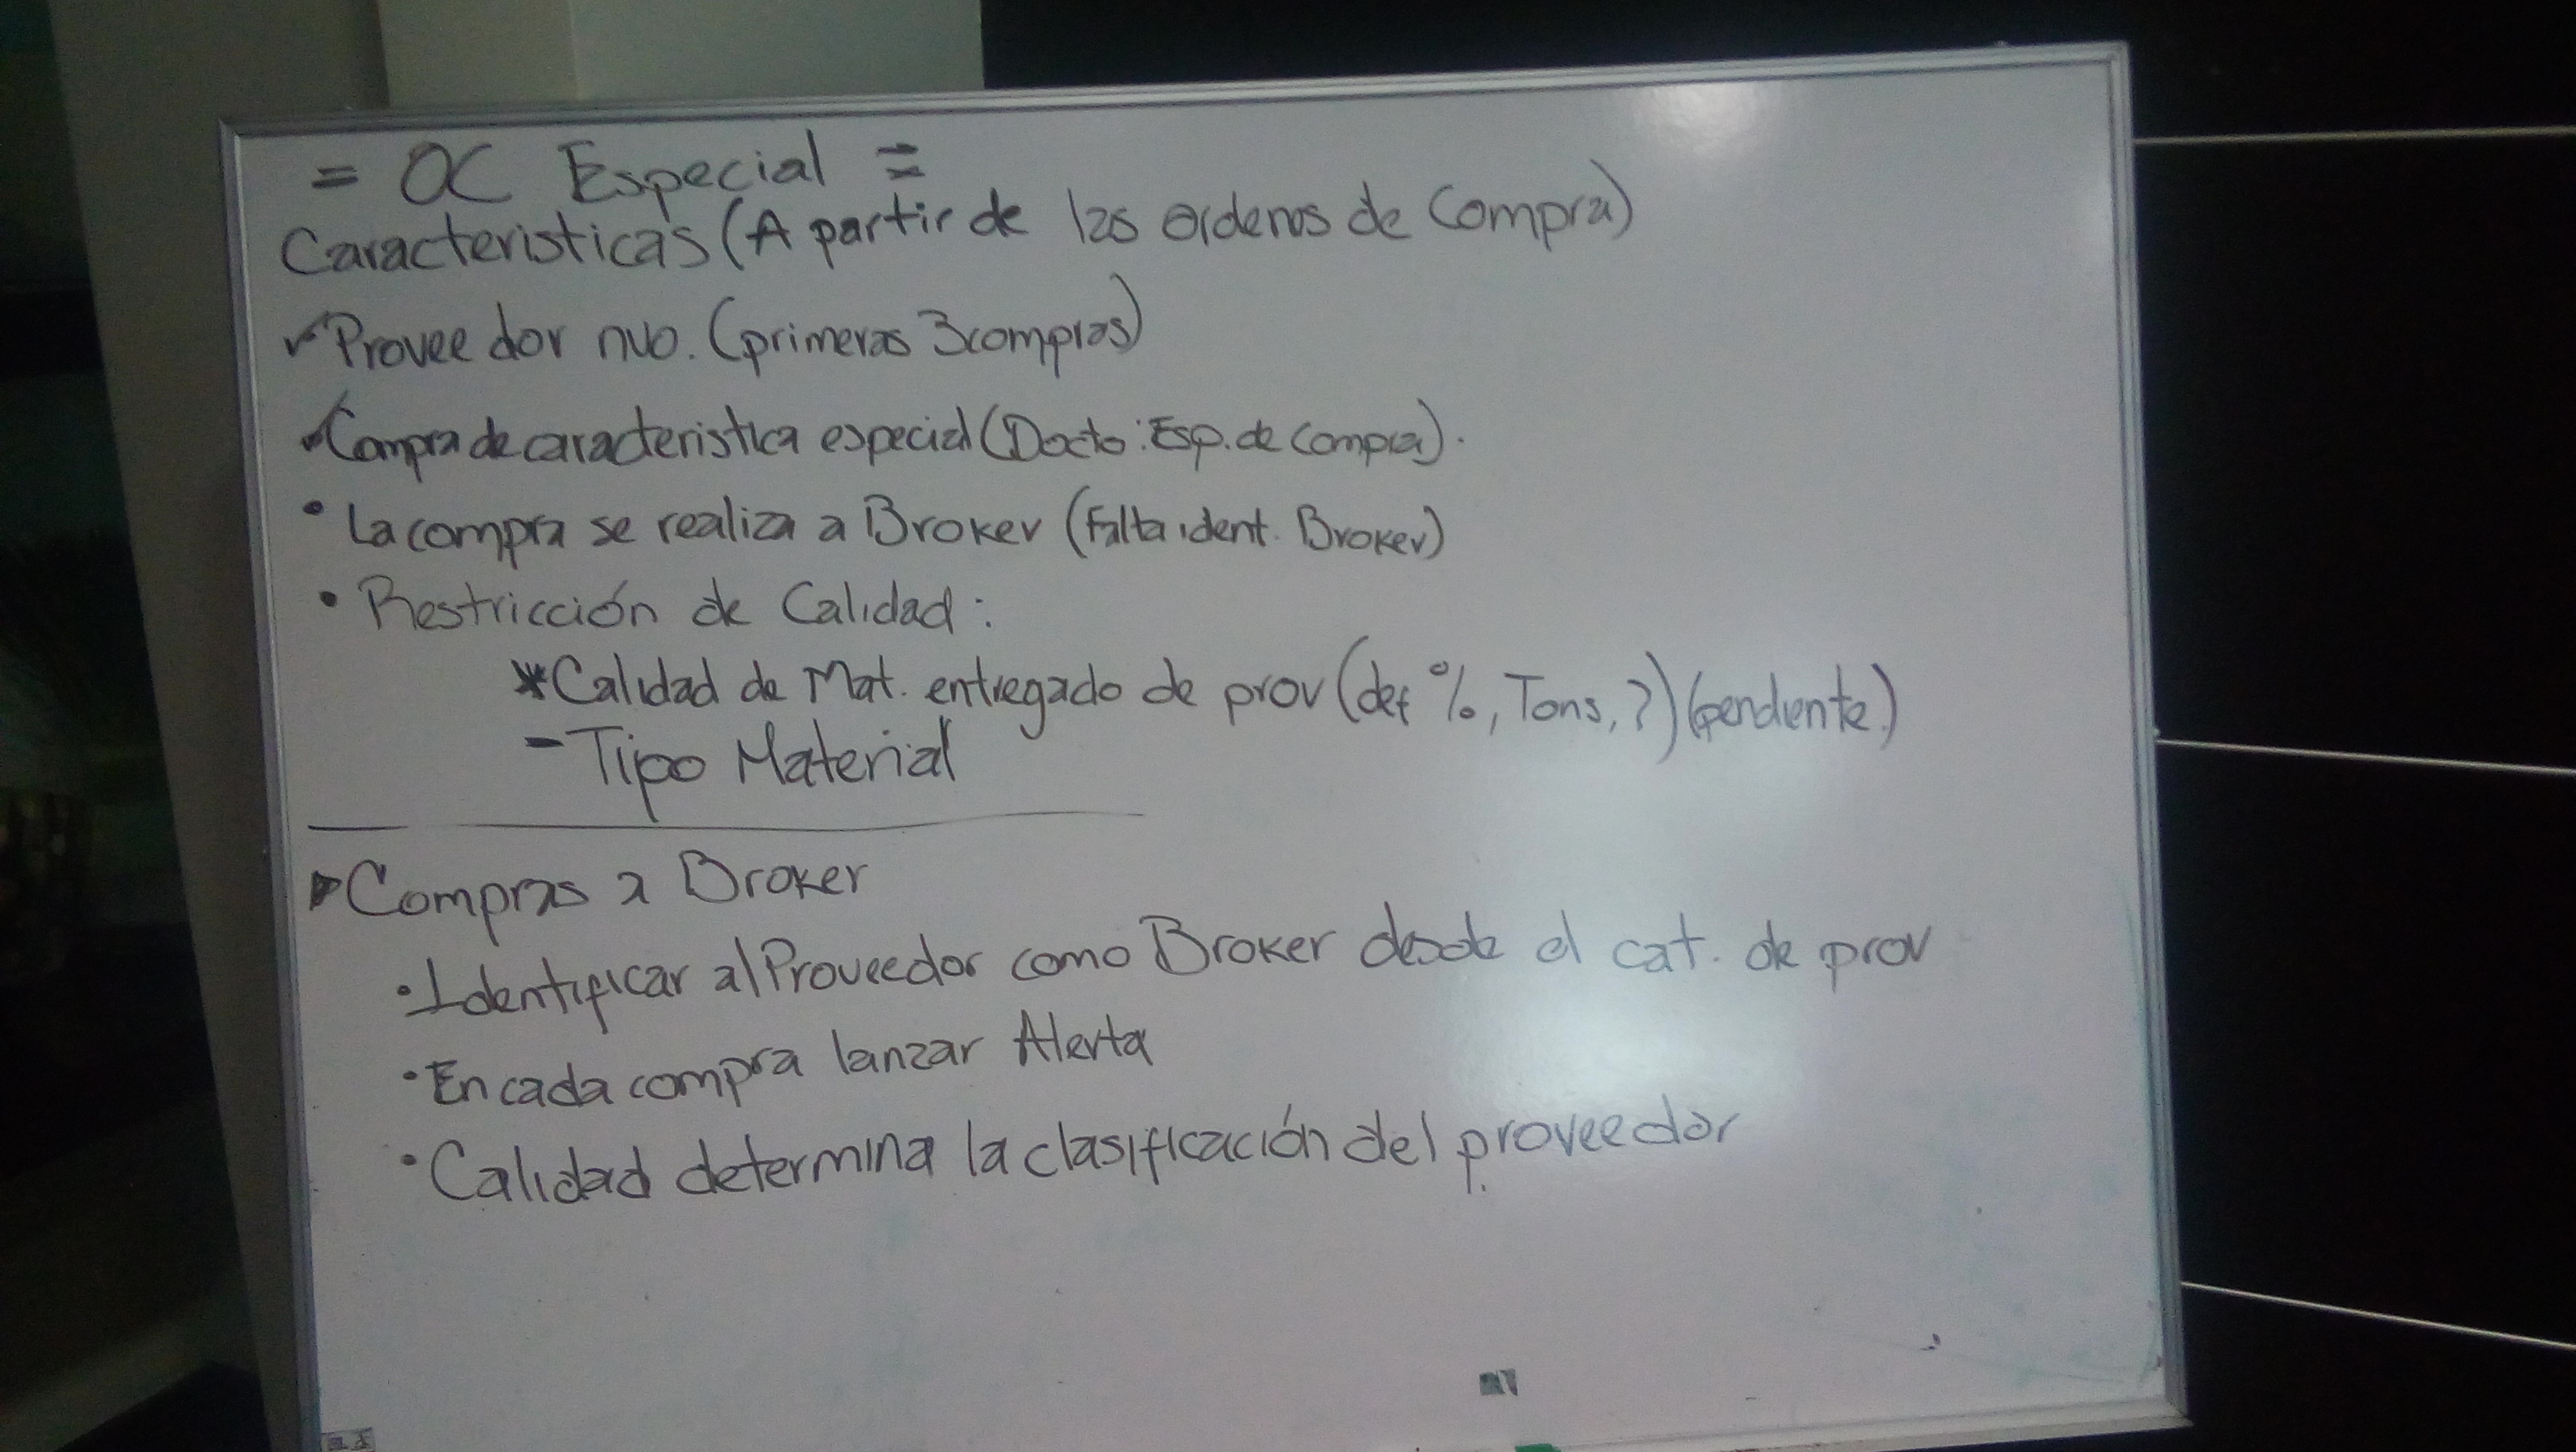 = OC Especial =
Caracteristicas (A partir de las ordenes de Compra)
✓ Proveedor nvo. (primeras 3 compras)
✓ Compra de caracteristica especial (Docto: Esp. de Compra).
• La compra se realiza a Broker (Falta ident. Broker)
• Restricción de Calidad:
* Calidad de Mat. entregado de prov (def %, Tons, ?) (pendiente)
- Tipo Material
▸ Compras a Broker
• Identificar al Proveedor como Broker desde el cat. de prov
• En cada compra lanzar Alerta
• Calidad determina la clasificación del proveedor